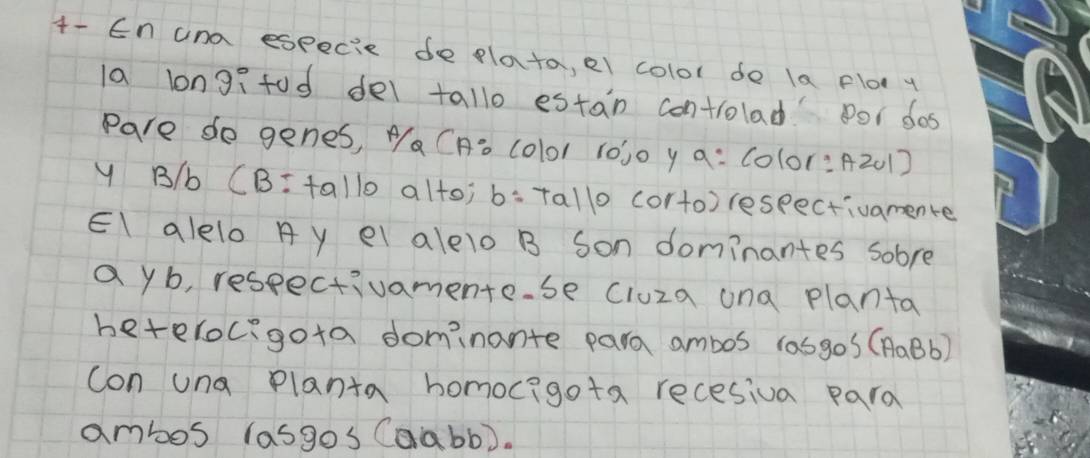 1- En una especie de plata, el color de la flor y
la longitud del tallo están controlad por dos
pare de genes, A/a (A: color rojo y a: color: Azul)
y B/b (B: tallo alto; b: Tallo corto) respectivamente
El alelo A y el alelo B son dominantes sobre
a y b, respectivamente. Se cruza una planta
heterocigota dominante para ambos rasgos (AaBb)
con una planta homocigota recesiva para
ambos rasgos (aabb).